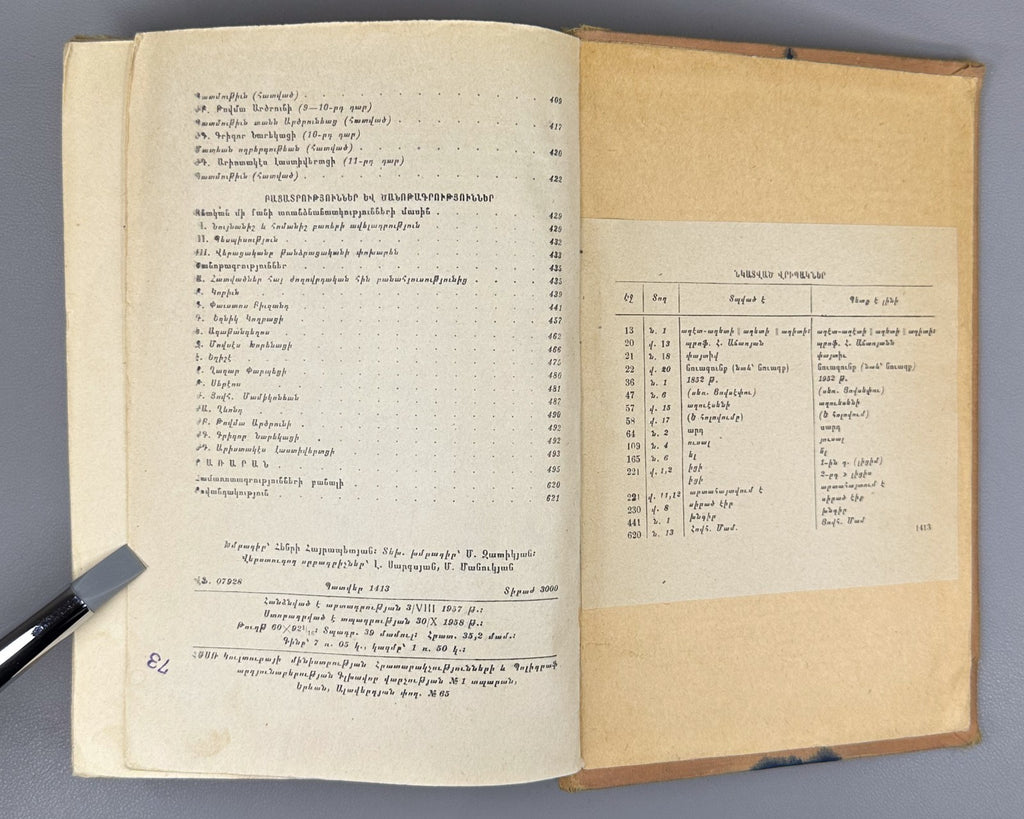 Պատմութիւն (հատված) . . . 409
ԺԲ. Թովմա Արծրունի (9—10-րդ դար)
Պատմութիւն տանն Արծրունեաց (հատված) . . . 417
ԺԳ. Գրիգոր Նարեկացի (10-րդ դար)
Մատեան ողբերգութեան (հատված) . . . 420
ԺԴ. Արիստակէս Լաստիվերտցի (11-րդ դար)
Պատմութիւն (հատված) . . . 422
ԲԱՑԱՏՐՈՒԹՅՈՒՆՆԵՐ ԵՎ ԾԱՆՈԹԱԳՐՈՒԹՅՈՒՆՆԵՐ
մի քանի առանձնահատկությունների մասին . . . 429
I. Նույնանիշ և հոմանիշ բառերի ավելադրություն . . . 429
II. Պեսպիսություն . . . 432
III. Վերացականը թանձրացականի փոխարեն . . . 433
Ծանոթագրություններ . . . 434
Ա. Հատվածներ հայ ժողովրդական հին բանահյուսությունից . . . 435
Բ. Կորիւն . . . 439
Գ. Փաւստոս Բիւզանդ . . . 441
Դ. Եզնիկ Կողբացի . . . 457
Ե. Ագաթանգեղոս . . . 462
Զ. Մովսէս Խորենացի . . . 466
Է. Եղիշէ . . . 475
Ը. Ղազար Փարպեցի . . . 480
Թ. Սեբէոս . . . 481
Ժ. Յովհ. Մամիկոնեան . . . 487
ԺԱ. Ղևոնդ . . . 490
ԺԲ. Թովմա Արծրունի . . . 492
ԺԳ. Գրիգոր Նարեկացի . . . 492
ԺԴ. Արիստակէս Լաստիվերտցի . . . 493
ԲԱՌԱՐԱՆ . . . 495
Համառոտագրությունների բանալի . . . 620
Բովանդակություն . . . 621
Խմբագիր՝ Հենրի Հայրապետյան: Տեխ. խմբագիր՝ Մ. Զատիկյան:
Վերստուգող սրբագրիչներ՝ Լ. Սարգսյան, Մ. Մանուկյան
ՎՖ. 07928 Պատվեր 1413 Տիրաժ 3000
Հանձնված է արտադրության 3/VIII 1957 թ.:
Ստորագրված է տպագրության 30/X 1958 թ.:
Թուղթ 60×92¹/₁₆: Տպագր. 39 մամուլ: Հրատ. 35,2 մամ.:
Գինը՝ 7 ռ. 05 կ., կազմը՝ 1 ռ. 50 կ.:
ՀՍՍՌ Կուլտուրայի մինիստրության Հրատարակչությունների և Պոլիգրաֆ
արդյունաբերության Գլխավոր վարչության № 1 տպարան,
Երևան, Ալավերդյան փող. № 65
73
ՆԿԱՏՎԱԾ ՎՐԻՊԱԿՆԵՐ
Էջ Տող Տպված է Պետք է լինի
13 ն. 1 աղէտ-աղետի ‖ աղետի ‖ աղիտի: աղէտ-աղէտի ‖ աղետի ‖ աղիտի:
20 վ. 13 պրոֆ. Հ. Աճառյան պրոֆ. Հ. Աճառյանն
21 ն. 18 փայտիվ փայտիւ
22 վ. 20 նուագունք (նան՝ նուազք) նուազունք (նաև՝ նուազք)
36 ն. 1 1852 թ. 1952 թ.
47 ն. 6 (սեռ. Յովսեփու) (սեռ. Յովսէփու)
57 վ. 15 աղուէսենի աղուեսենի
58 վ. 17 (Ե հոլովումը) (Ե հոլովում)
64 ն. 2 արդ սարդ
109 ն. 4 ուսալ յուսալ
165 ն. 6 ել եկ
221 վ. 1,2 իցի 1-ին դ. (լիցիմ)
իցի 2-րդ » լիցիս
221 վ. 11,12 արտահայտվում է արտահայտում է
230 վ. 8 սիրած էիր սիրած էիք
441 ն. 1 խնգիր խնդիր
620 ն. 13 Հովհ. Մամ. Յովհ. Մամ
1413